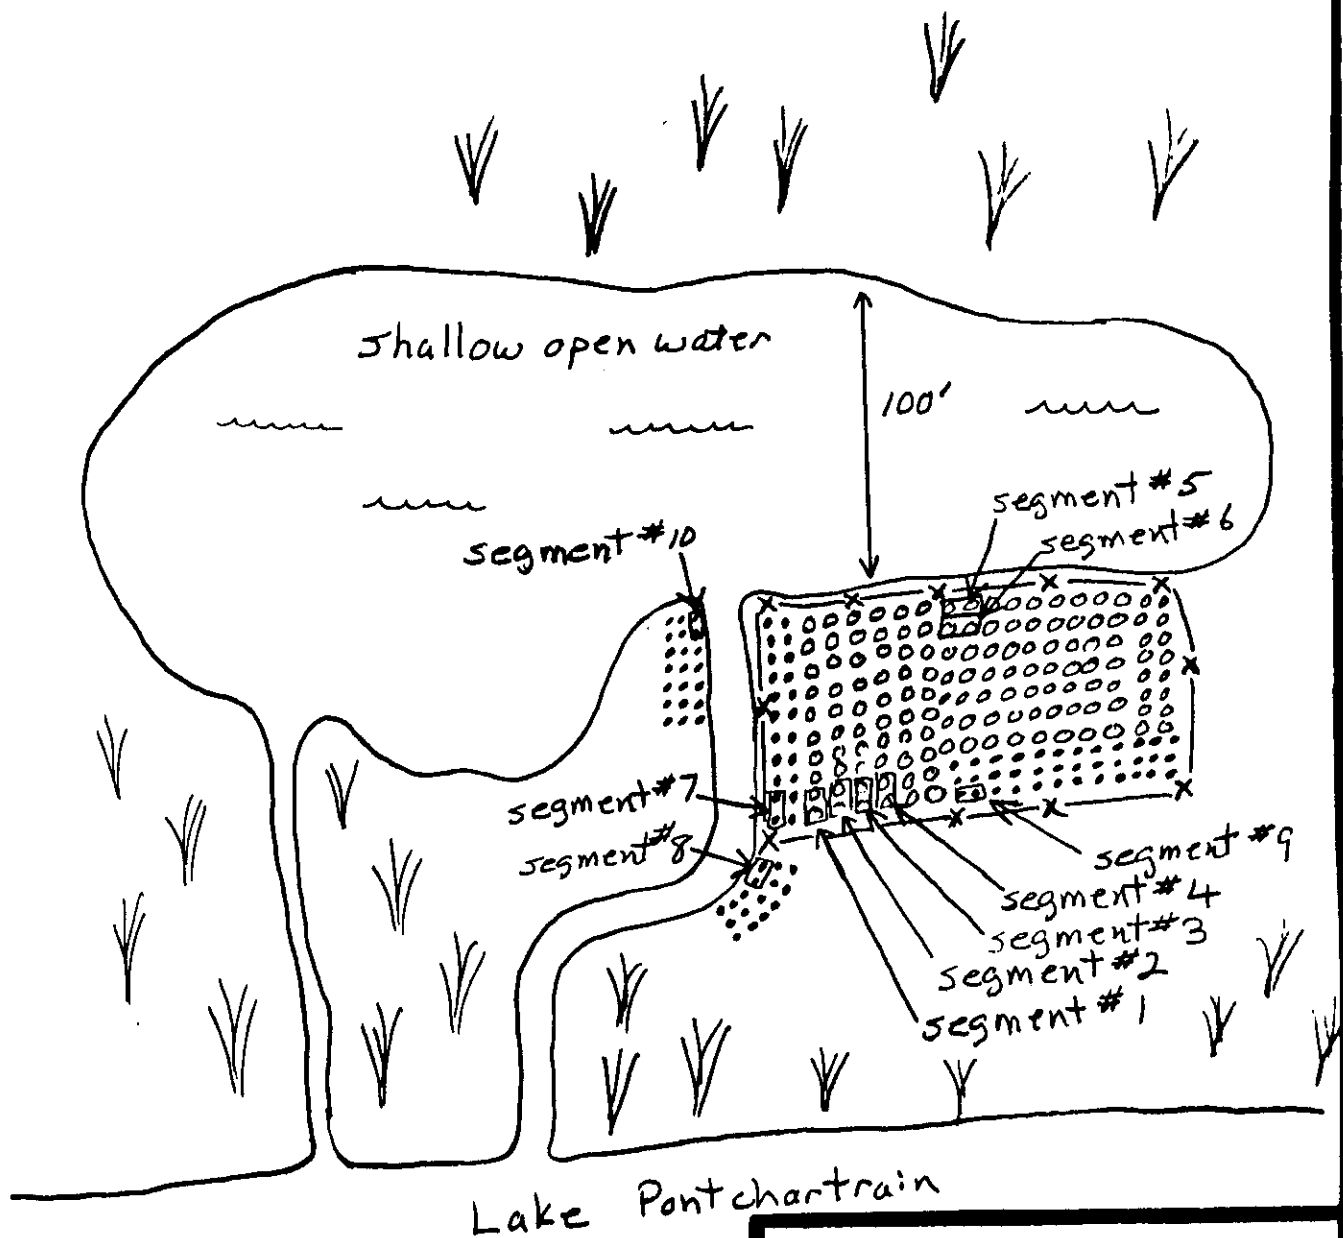 shallow open water
100'
segment #5
segment #6
segment #10
segment #7
segment #8
segment #9
segment #4
segment #3
segment #2
segment #1
Lake Pontchartrain